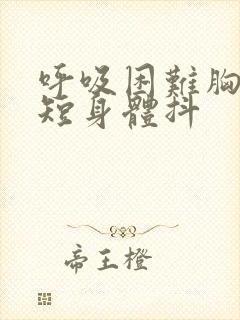 呼吸困難胸
短身體抖
帝王橙